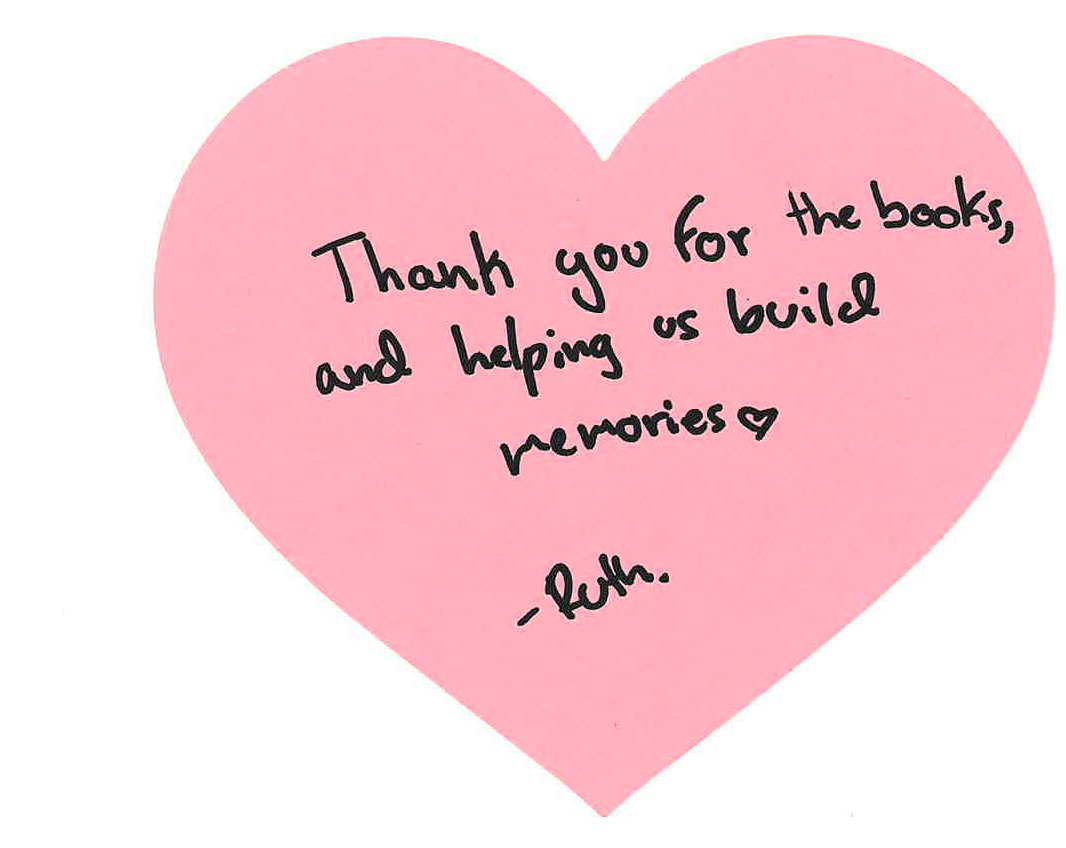 Thank you for the books,
and helping us build
memories ♡
-Ruth.